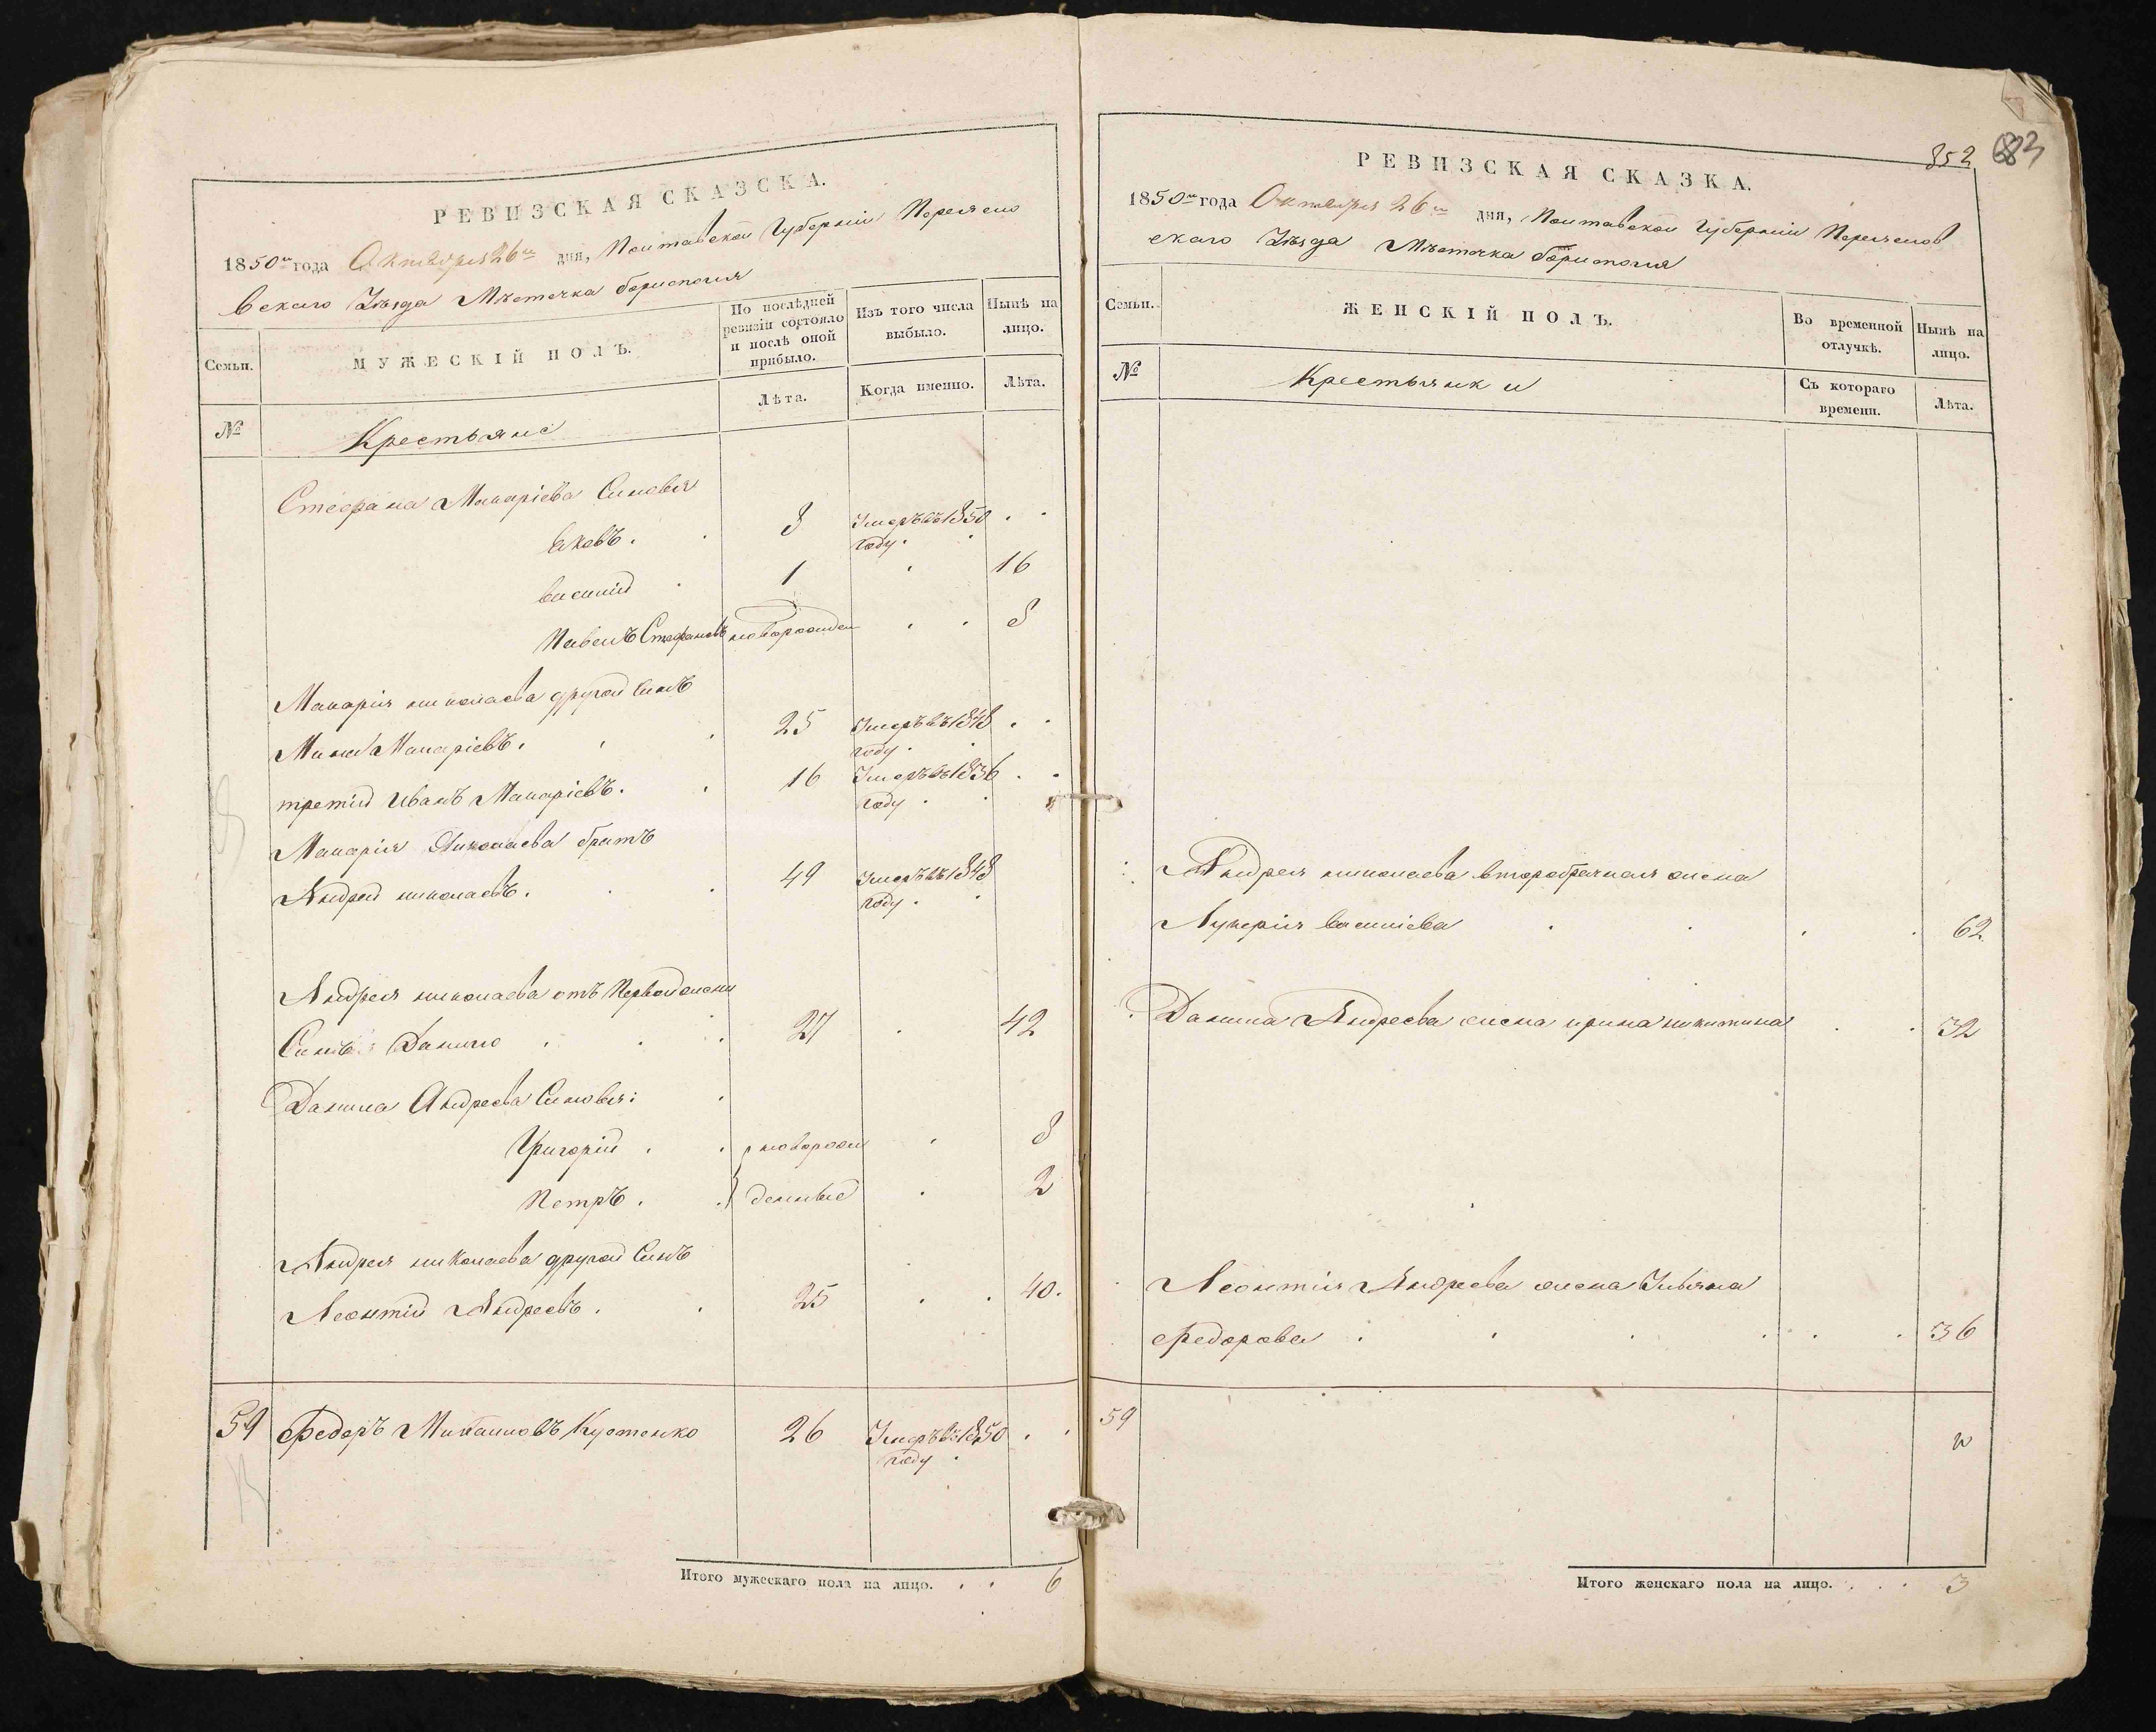 РЕВИЗСКАЯ СКАЗСКА.
1850го года Октября 26го дня, Полтавской Губерніи Переясло
вскаго Уѣзда Мѣстечка борисполя
Семьи.
МУЖЕСКІЙ ПОЛЪ.
По послѣдней ревизіи состояло и послѣ оной прибыло.
Изъ того числа выбыло.
Нынѣ на лицо.
№
Лѣта.
Когда именно.
Лѣта.
Крестьяне
Стефана Макаріева Синовья
Яковъ . 8 Умеръ въ 1850 году
василій 1 16
Павелъ Стефановъ новорожден 8
Макарія николаева другой Синъ
Мина Макаріевъ. 25 Умеръ въ 1848 году
третій иванъ Макаріевъ. 16 Умеръ въ 1836 году
Макарія Николаева братъ
Андрей николаевъ. 49 Умеръ въ 1848 году
Андрея николаева отъ Первой жени
Синъ Данило 27 42
Данила Андреева Синовья:
Григорій . новорож 8
Петръ . денные 2
Андрея николаева другой Синъ
Леонтій Андреевъ . 25 40.
59 Федоръ Кустенко 26 Умеръ въ 1850 году
Итого мужескаго пола на лицо. . . 6
852 883
РЕВИЗСКАЯ СКАЗКА.
1850го года Октября 26го дня, Полтавской Губерніи Переяслов
скаго Уѣзда Мѣстечка борисполя
Семьи.
ЖЕНСКІЙ ПОЛЪ.
Во временной отлучкѣ.
Нынѣ на лицо.
№
Крестьянки
Съ котораго времени.
Лѣта.
Андрея николаева второбрачная жена
Лукерія василіева 62
Данила Андреева жена ирина никитина 32
Леонтія Андреева жена Уліяна
Федорова . 36
59
Итого женскаго пола на лицо. . . . 3